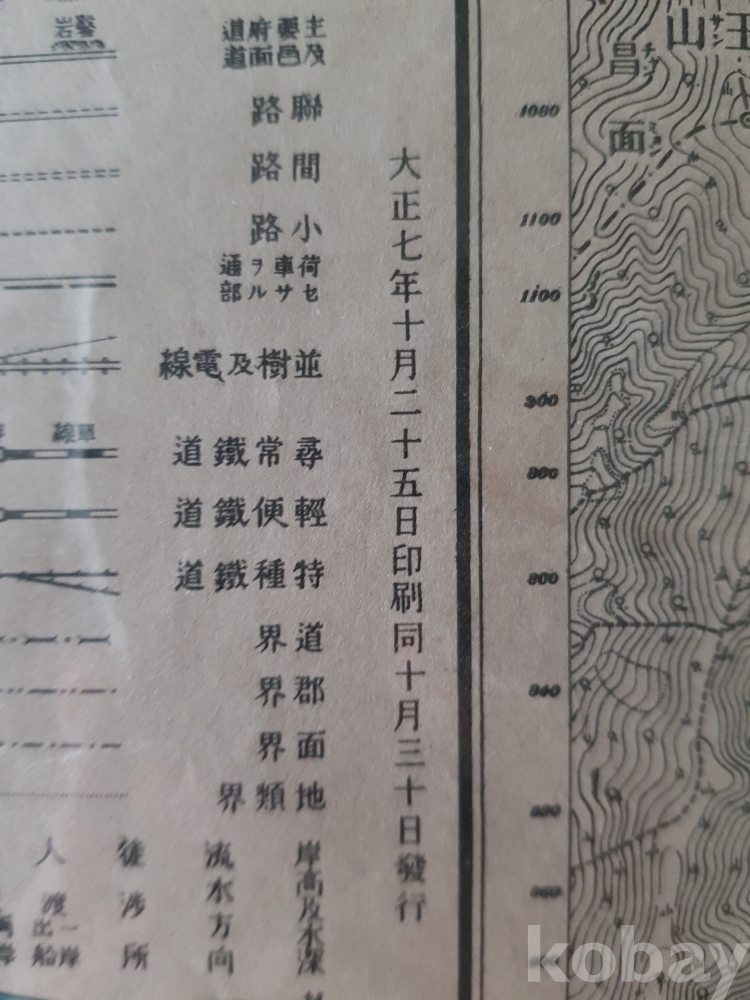 主要府道
及邑面道
聯路
間路
小路
荷車ヲ通
セサル部
並樹及電線
單線
尋常鐵道
輕便鐵道
特種鐵道
道界
郡界
面界
地類界
岸高及水深
流水方向
徒涉所
人渡
一岸出船
大正七年十月二十五日印刷同十月三十日發行
1000
1100
1100
800
800
840
王山
サン
昌面
チャン
ミョン
kobay